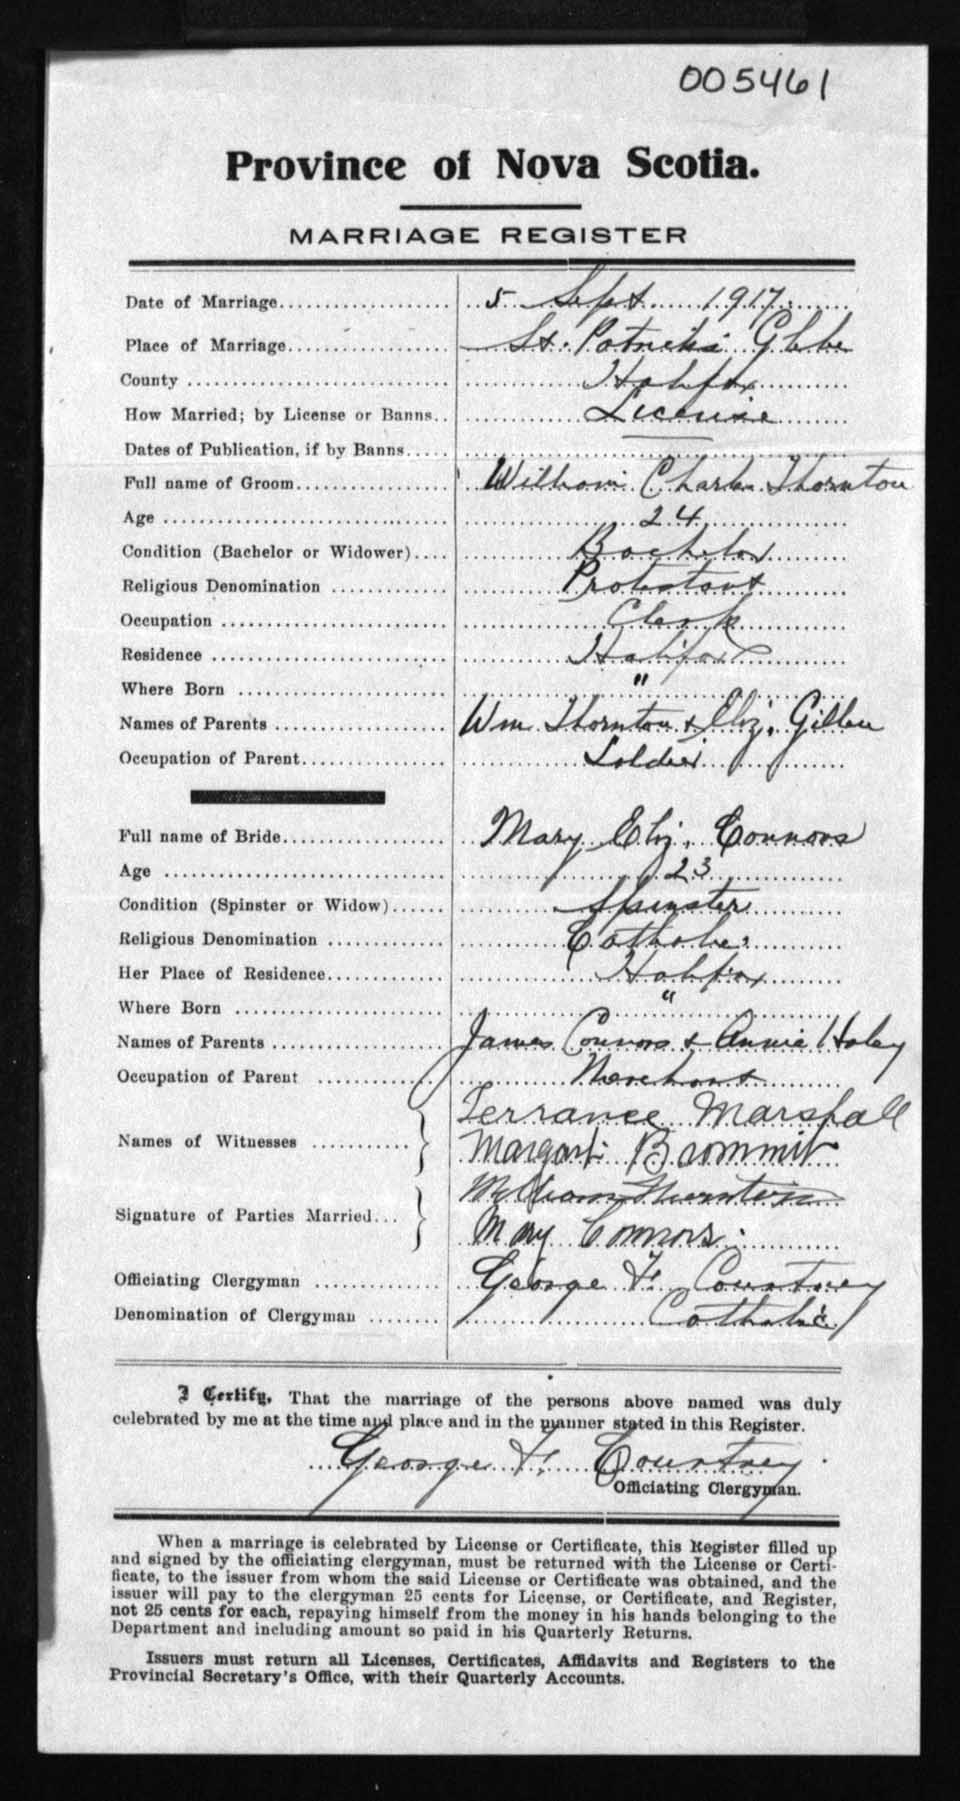 005461
Province of Nova Scotia.
MARRIAGE REGISTER
Date of Marriage 5 Sept 1917.
Place of Marriage St. Patrick's Glebe
County Halifax
How Married; by License or Banns License
Dates of Publication, if by Banns
Full name of Groom William Charles Thornton
Age 24
Condition (Bachelor or Widower) Bachelor
Religious Denomination Protestant
Occupation Clerk
Residence Halifax
Where Born "
Names of Parents Wm Thornton & Eliz.
Occupation of Parent Soldier
Full name of Bride Mary Eliz. Connors
Age 23
Condition (Spinster or Widow) Spinster
Religious Denomination Catholic
Her Place of Residence Halifax
Where Born "
Names of Parents James Connors & Annie Haley
Occupation of Parent Merchant
Terrance Marshall
Names of Witnesses
Margart Brommit
William Thornton
Signature of Parties Married
Mary Connors.
Officiating Clergyman George F. Courtney
Denomination of Clergyman Catholic
I Certify, That the marriage of the persons above named was duly
celebrated by me at the time and place and in the manner stated in this Register.
George F. Courtney
Officiating Clergyman.
When a marriage is celebrated by License or Certificate, this Register filled up
and signed by the officiating clergyman, must be returned with the License or Certi-
ficate, to the issuer from whom the said License or Certificate was obtained, and the
issuer will pay to the clergyman 25 cents for License, or Certificate, and Register,
not 25 cents for each, repaying himself from the money in his hands belonging to the
Department and including amount so paid in his Quarterly Returns.
Issuers must return all Licenses, Certificates, Affidavits and Registers to the
Provincial Secretary's Office, with their Quarterly Accounts.